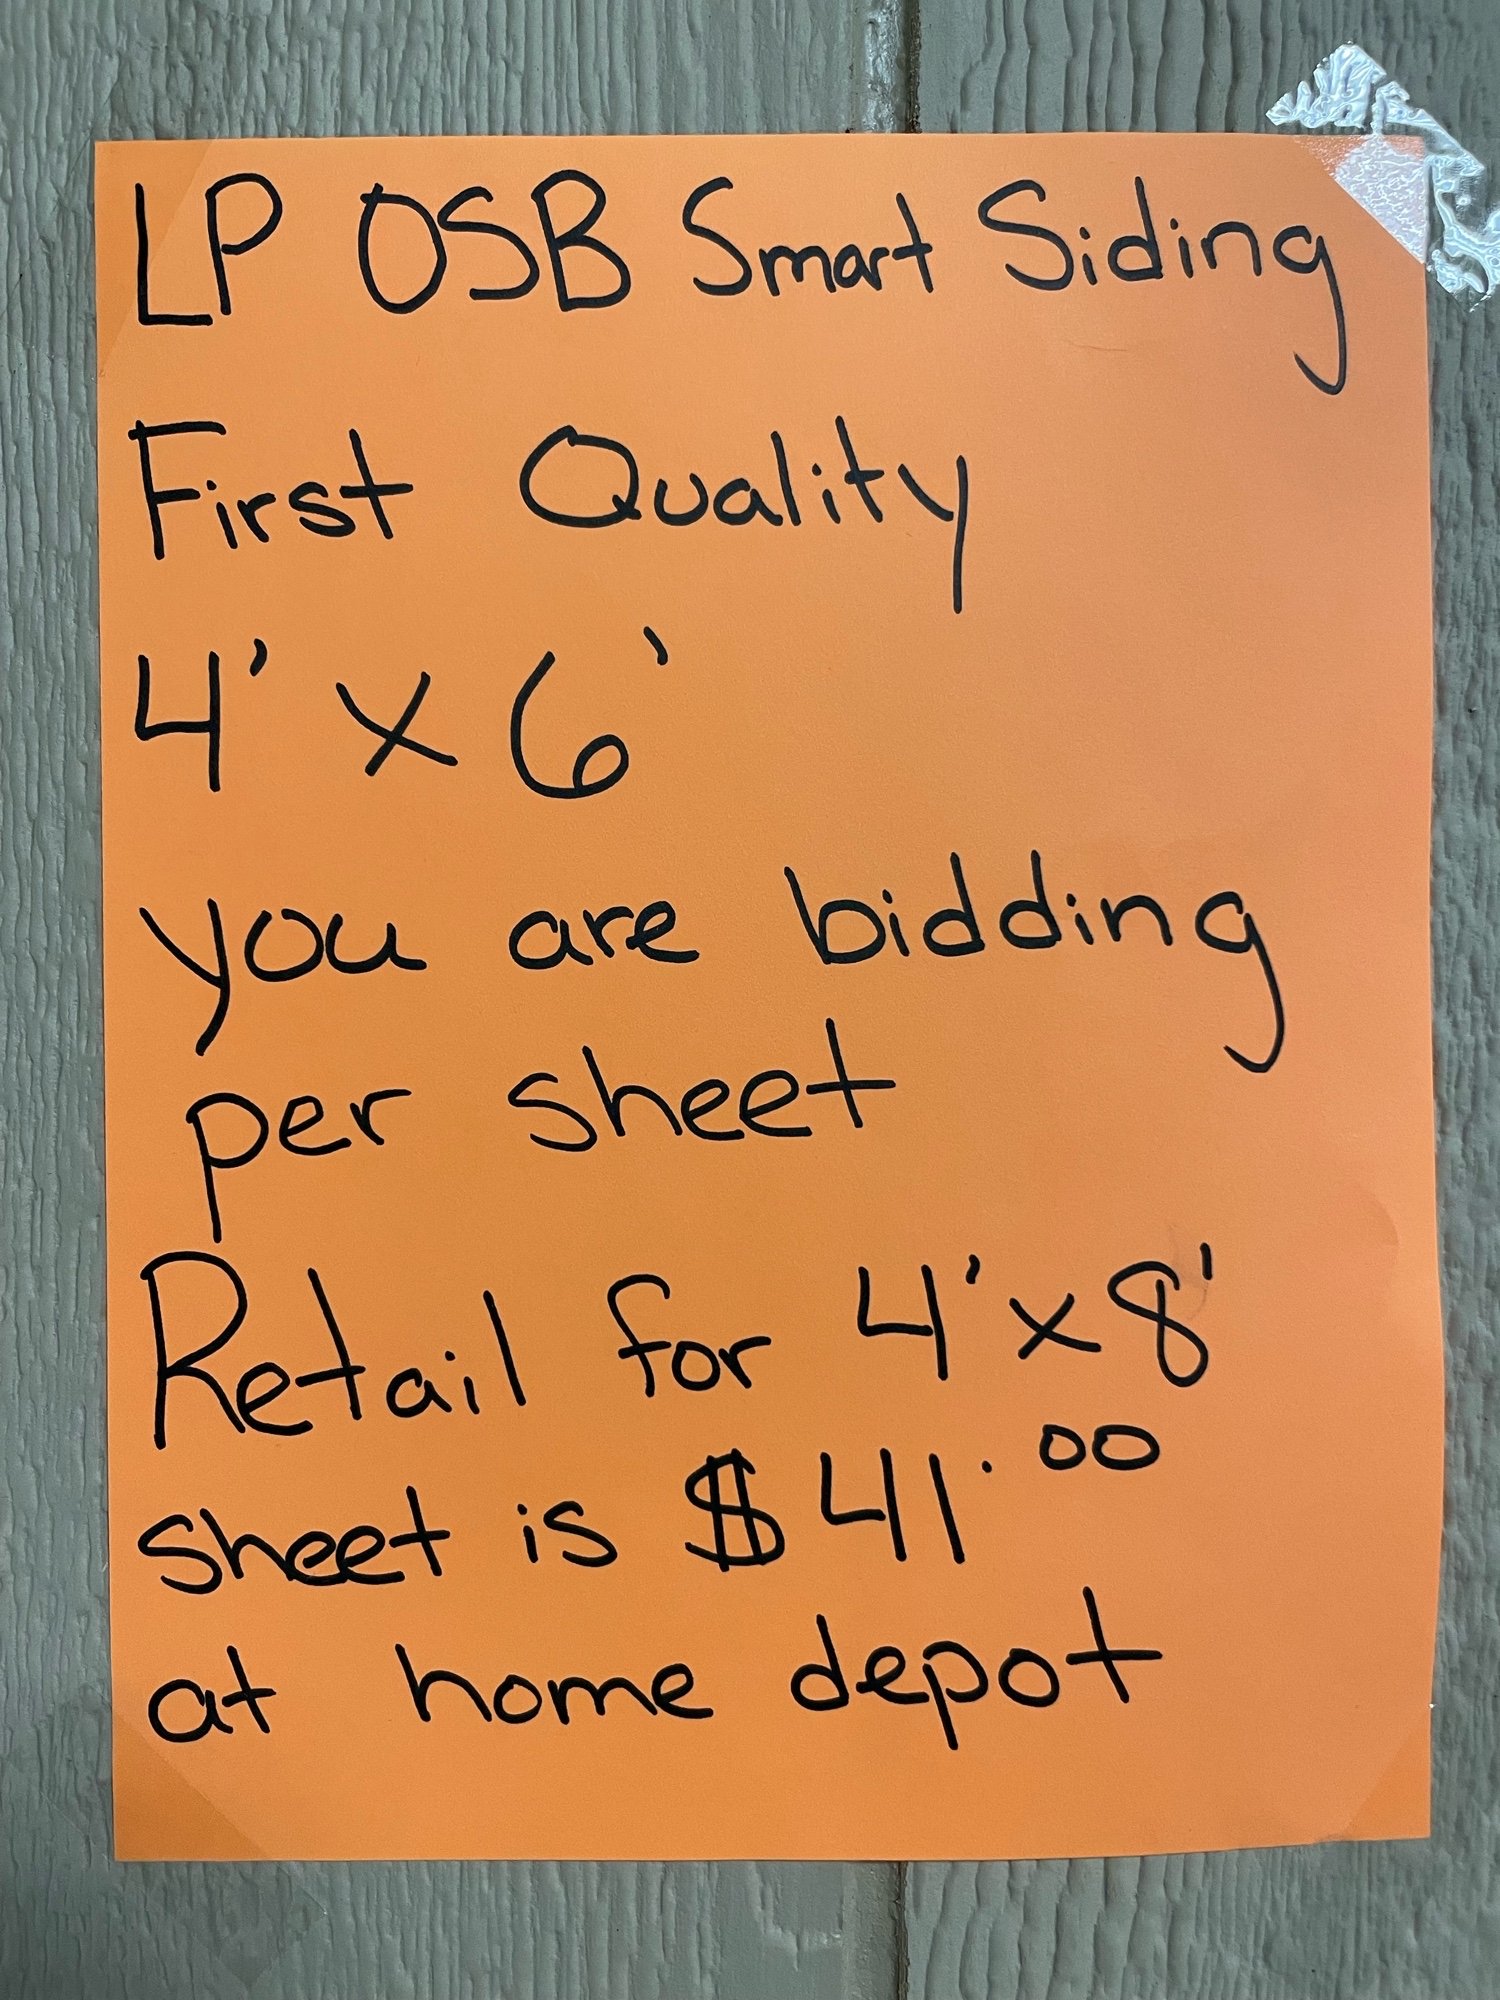 LP OSB Smart Siding
First Quality
4' x 6'
you are bidding
per sheet
Retail for 4' x 8'
sheet is $41.00
at home depot